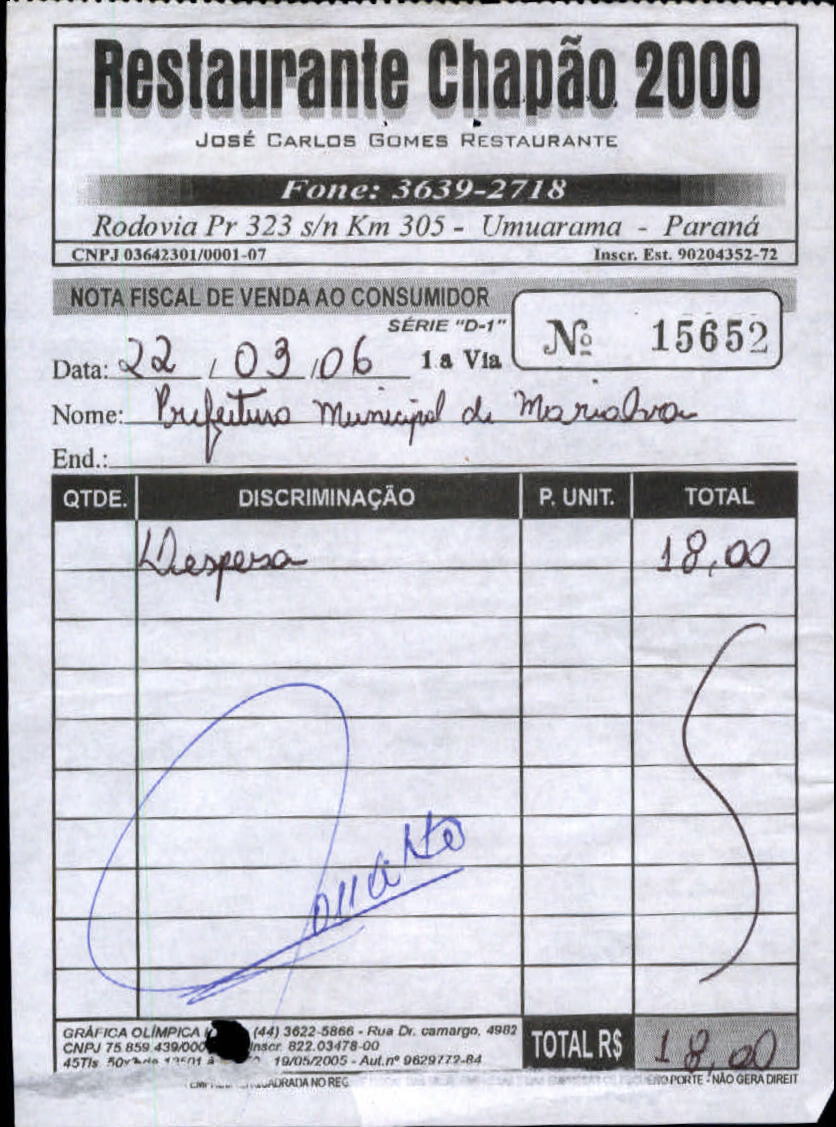 Restaurante Chapão 2000
JOSÉ CARLOS GOMES RESTAURANTE
Fone: 3639-2718
Rodovia Pr 323 s/n Km 305 - Umuarama - Paraná
CNPJ 03642301/0001-07 Inscr. Est. 90204352-72
NOTA FISCAL DE VENDA AO CONSUMIDOR
SÉRIE "D-1"
Nº 15652
Data: 22 / 03 / 06 1 a Via
Nome: Prefeitura Municipal de Marialva
End.:
QTDE. DISCRIMINAÇÃO P. UNIT. TOTAL
Despesa 18,00
GRÁFICA OLÍMPICA (44) 3622-5866 - Rua Dr. camargo, 4982
CNPJ 75.859.439/000 Inscr. 822.03478-00
45Tls. 50x 19/05/2005 - Aut.nº 9629772-84
TOTAL R$ 18,00
PORTE - NÃO GERA DIREIT